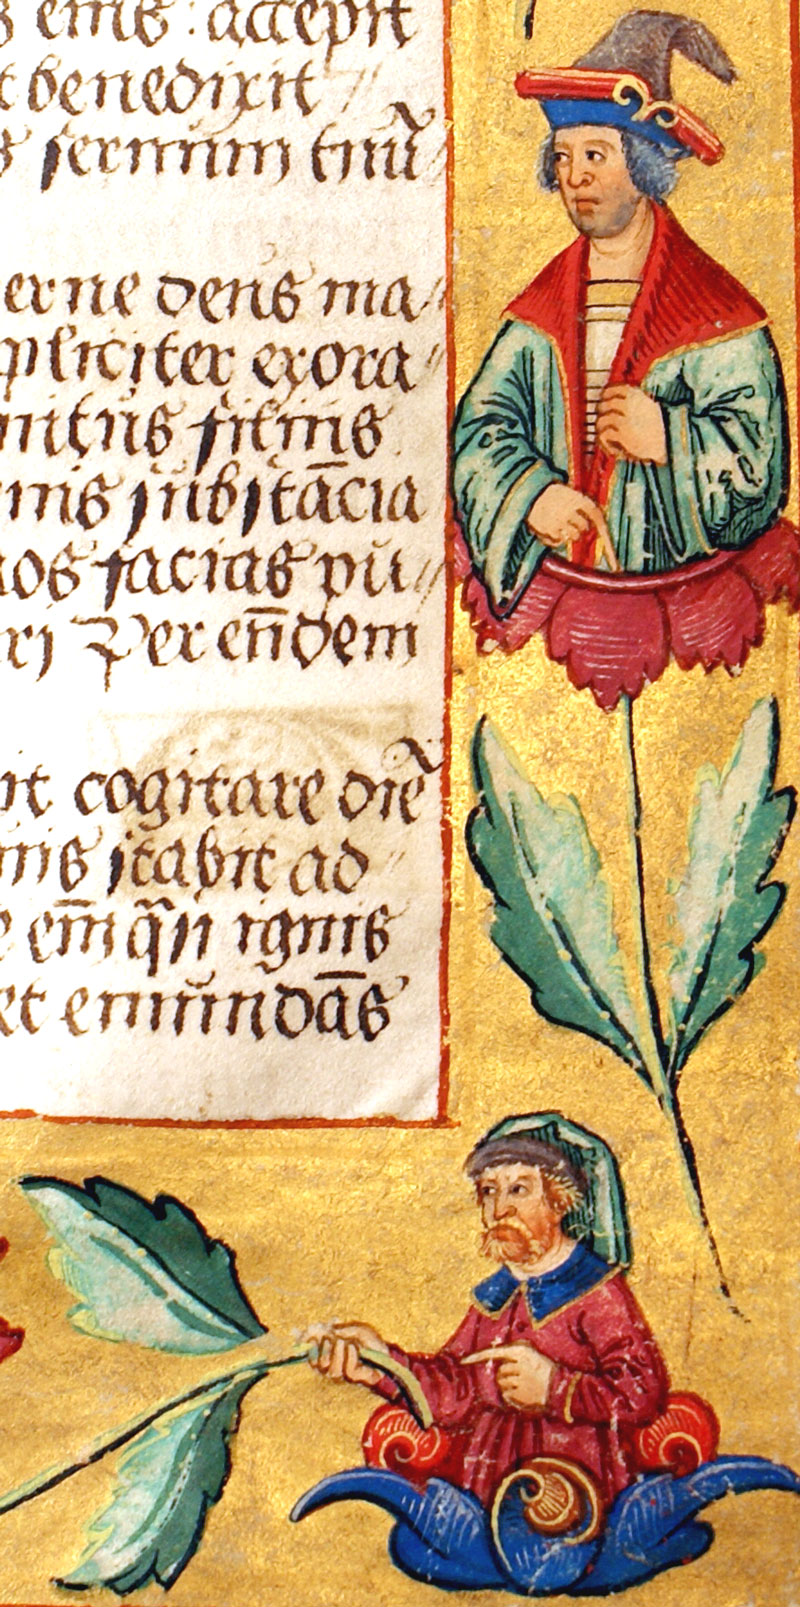 s eius : accepit
t benedixit
s seruum tuū
erne deus ma
pliciter exora
nitus filius
nis substācia
nos facias pu
ri Per eūdem
it cogitare diē
nis stabit ad
e em̄ qͣsi ignis
et emundās